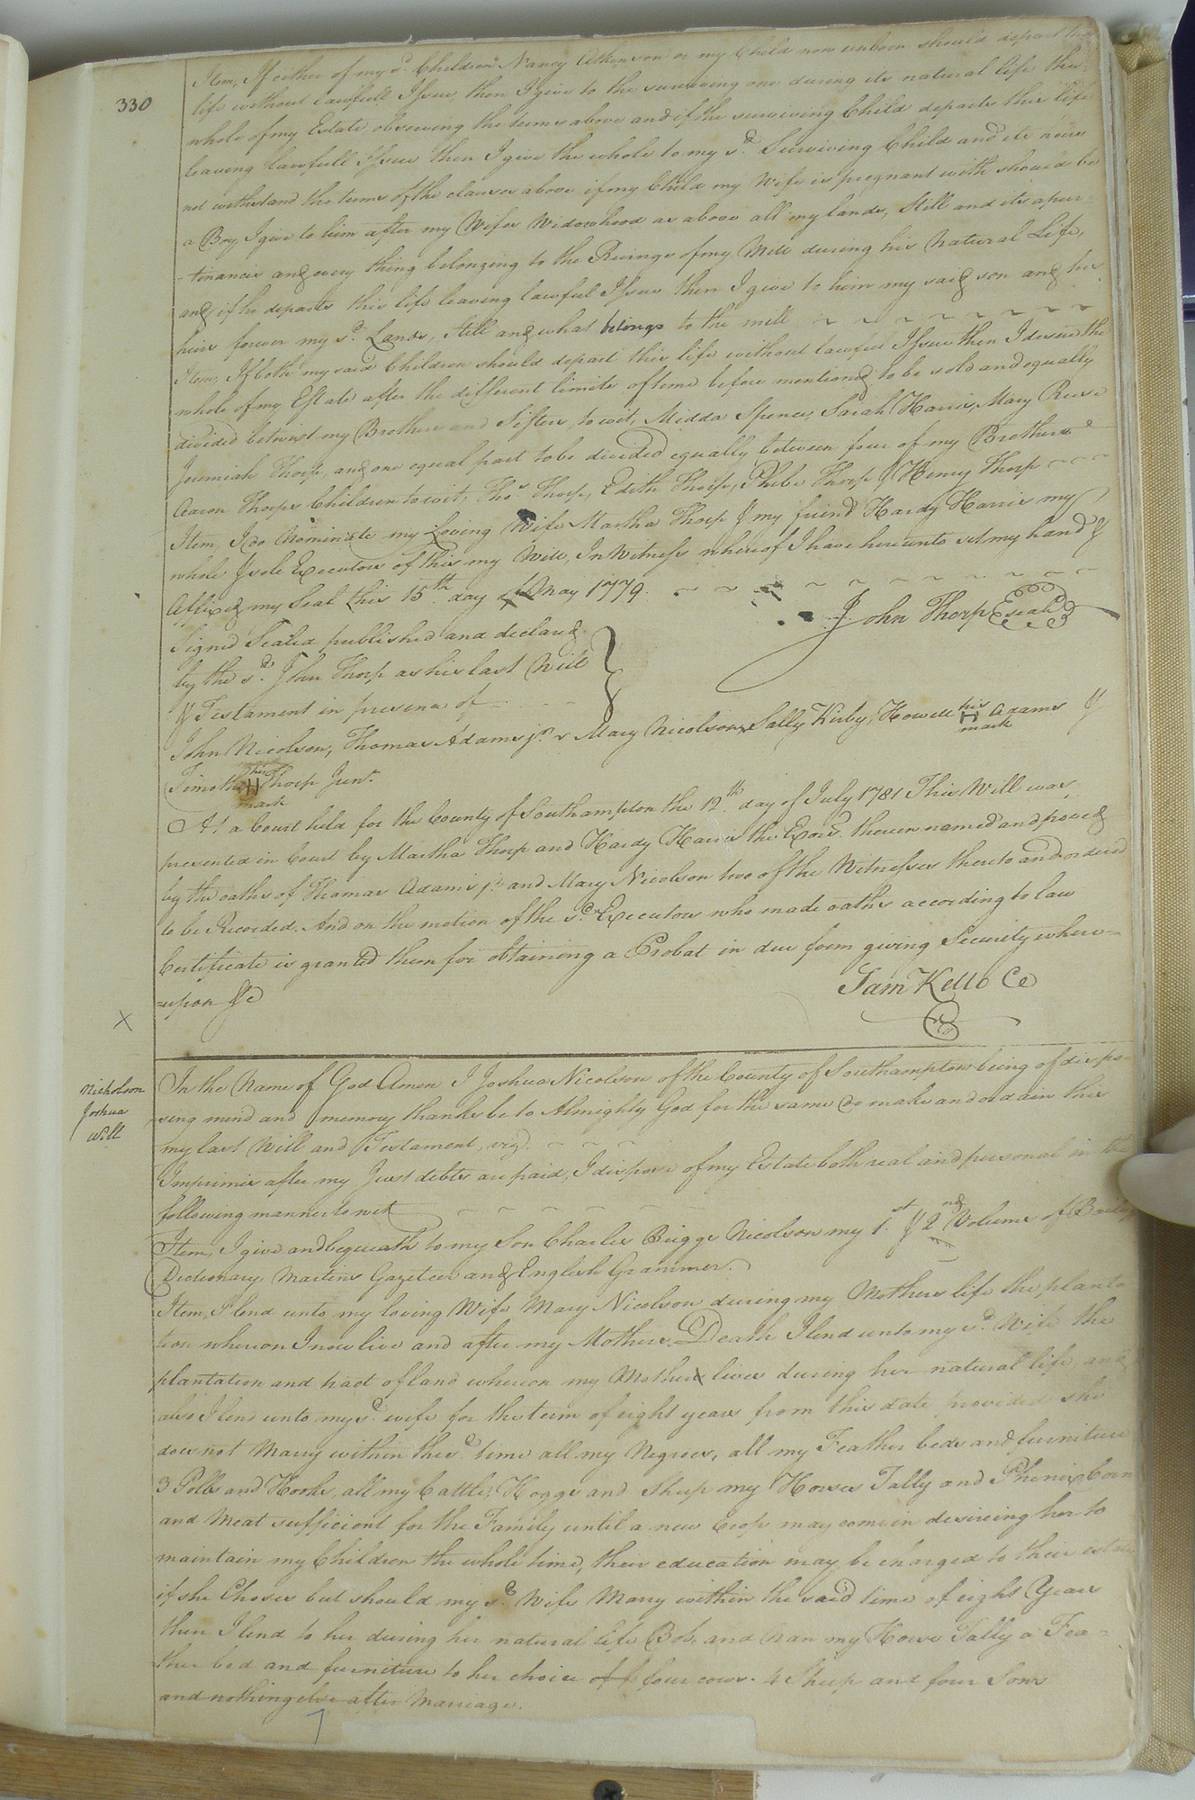 330
Item, If either of my sd. Children Nancy Atkinson or my Child now unborn should depart this
life without lawfull Issue, then I give to the surviving one during its natural life the
whole of my Estate observing the terms above and if the surviving Child departs this life
leaving lawfull Issue then I give the whole to my sd. Surviving Child and its heirs
not withstand the terms of the clauses above if my Child my Wife is pregnant with should be
a Boy, I give to him after my Wifes Widowhood as above all my lands, Still and its apur-
-tinancis and every thing belonging to the of my Mill during his Natural Life,
and if he departs this life leaving lawful Issue then I give to him my said son and his
heirs forever my sd. Lands, Still and what belongs to the mill
Item, If both my said Children should depart this life without lawful Issue then I desire the
whole of my Estate after the different limits of time before mentioned to be sold and equally
divided betwixt my Brothers and Sisters, to wit, Midda Spence, Sarah Harris, Mary Reese
Jeremiah Thorp, and one equal part to be divided equally between four of my Brother
Aaron Thorps Children to wit, Thos. Thorp, Edith Thorp, Phebe Thorp & Henry Thorp
Item, I do Nominate my Loving Wife Martha Thorp & my friend Hardy Harris my
whole & sole Executors of this my Will, In Witness whereof I have hereunto set my hand &
Affixed my Seal this 15th. day of May 1779.
John Thorp (seal)
Signed Sealed published and declard
by the sd. John Thorp as his last Will
& Testament in presence of
John Nicolson, Thomas Adams jr. Mary Nicolson, Sally Kirby, Howell his H mark Adams &
Timothy his H mark Thorp Junr.
At a Court held for the County of Southampton the 12th. day of July 1781 This Will was
presented in Court by Martha Thorp and Hardy Harris the Exors. therein named and proved
by the oaths of Thomas Adams jr. and Mary Nicolson two of the Witnesses thereto and ordered
to be Recorded. And on the motion of the sd. Executors who made oaths according to law
Certificate is granted them for obtaining a Probat in due form giving Security where-
-upon &c
Sam Kello Cc
X
Nicholson
Joshua
Will
In the Name of God Amen I Joshua Nicolson of the County of Southampton being of dispo-
sing mind and memory thanks be to Almighty God for the same do make and ordain this
my last Will and Testament, viz.
Imprimis after my Just debts are paid, I dispose of my Estate both real and personal in the
following manner to wit
Item, I give and bequeath to my Son Charles Briggs Nicolson my 1st & 2nd Volums of Baileys
Dictionary, Martins Gazeteer and English Grammer.
Item, I lend unto my loving Wife Mary Nicolson during my Mothers life the planta
tion whereon I now live and after my Mothers Death I lend unto my sd. Wife the
plantation and tract of land whereon my Mother lives during her natural life and
also I lend unto my sd. wife for the term of eight years from this date provided she
does not Marry within the sd. time all my Negroes, all my Feather beds and furniture
3 Potts and Hooks all my Cattle, Hoggs and Sheep my Horses Tally and Phenix, Corn
and Meat sufficient for the Family until a new crop may come in desireing her to
maintain my Children the whole time, their education may be charged to their estate
if she Choses but should my sd. Wife Marry within the said time of eight Years
then I lend to her during her natural life Bob, and Nan my Horse Tally a Fea-
ther bed and furniture to her choice of four cows. 4 Sheep and four Sows
and nothing else after Marriage.